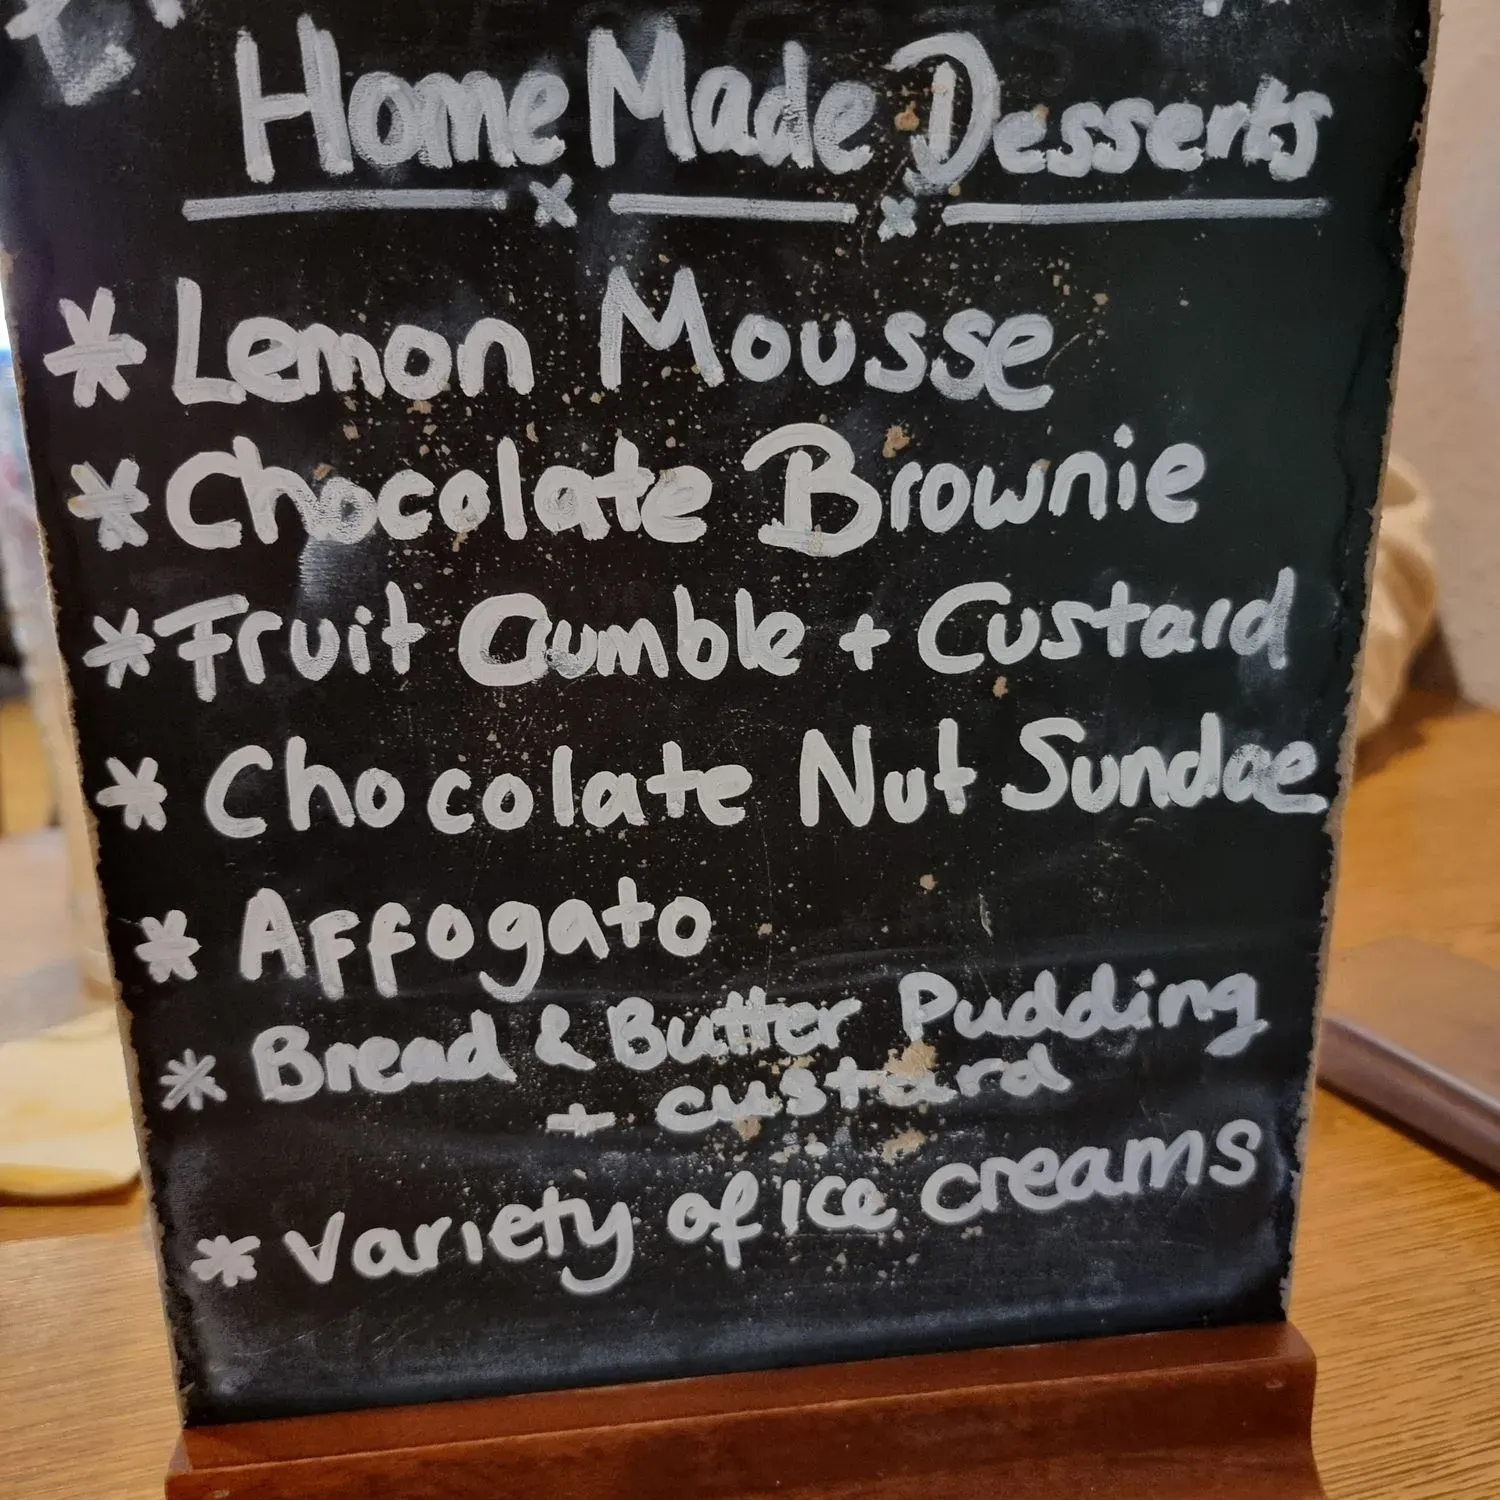 HomeMade Desserts
* Lemon Mousse
* Chocolate Brownie
* Fruit Crumble + Custard
* Chocolate Nut Sundae
* Affogato
* Bread & Butter Pudding
+ custard
* Variety of ice creams